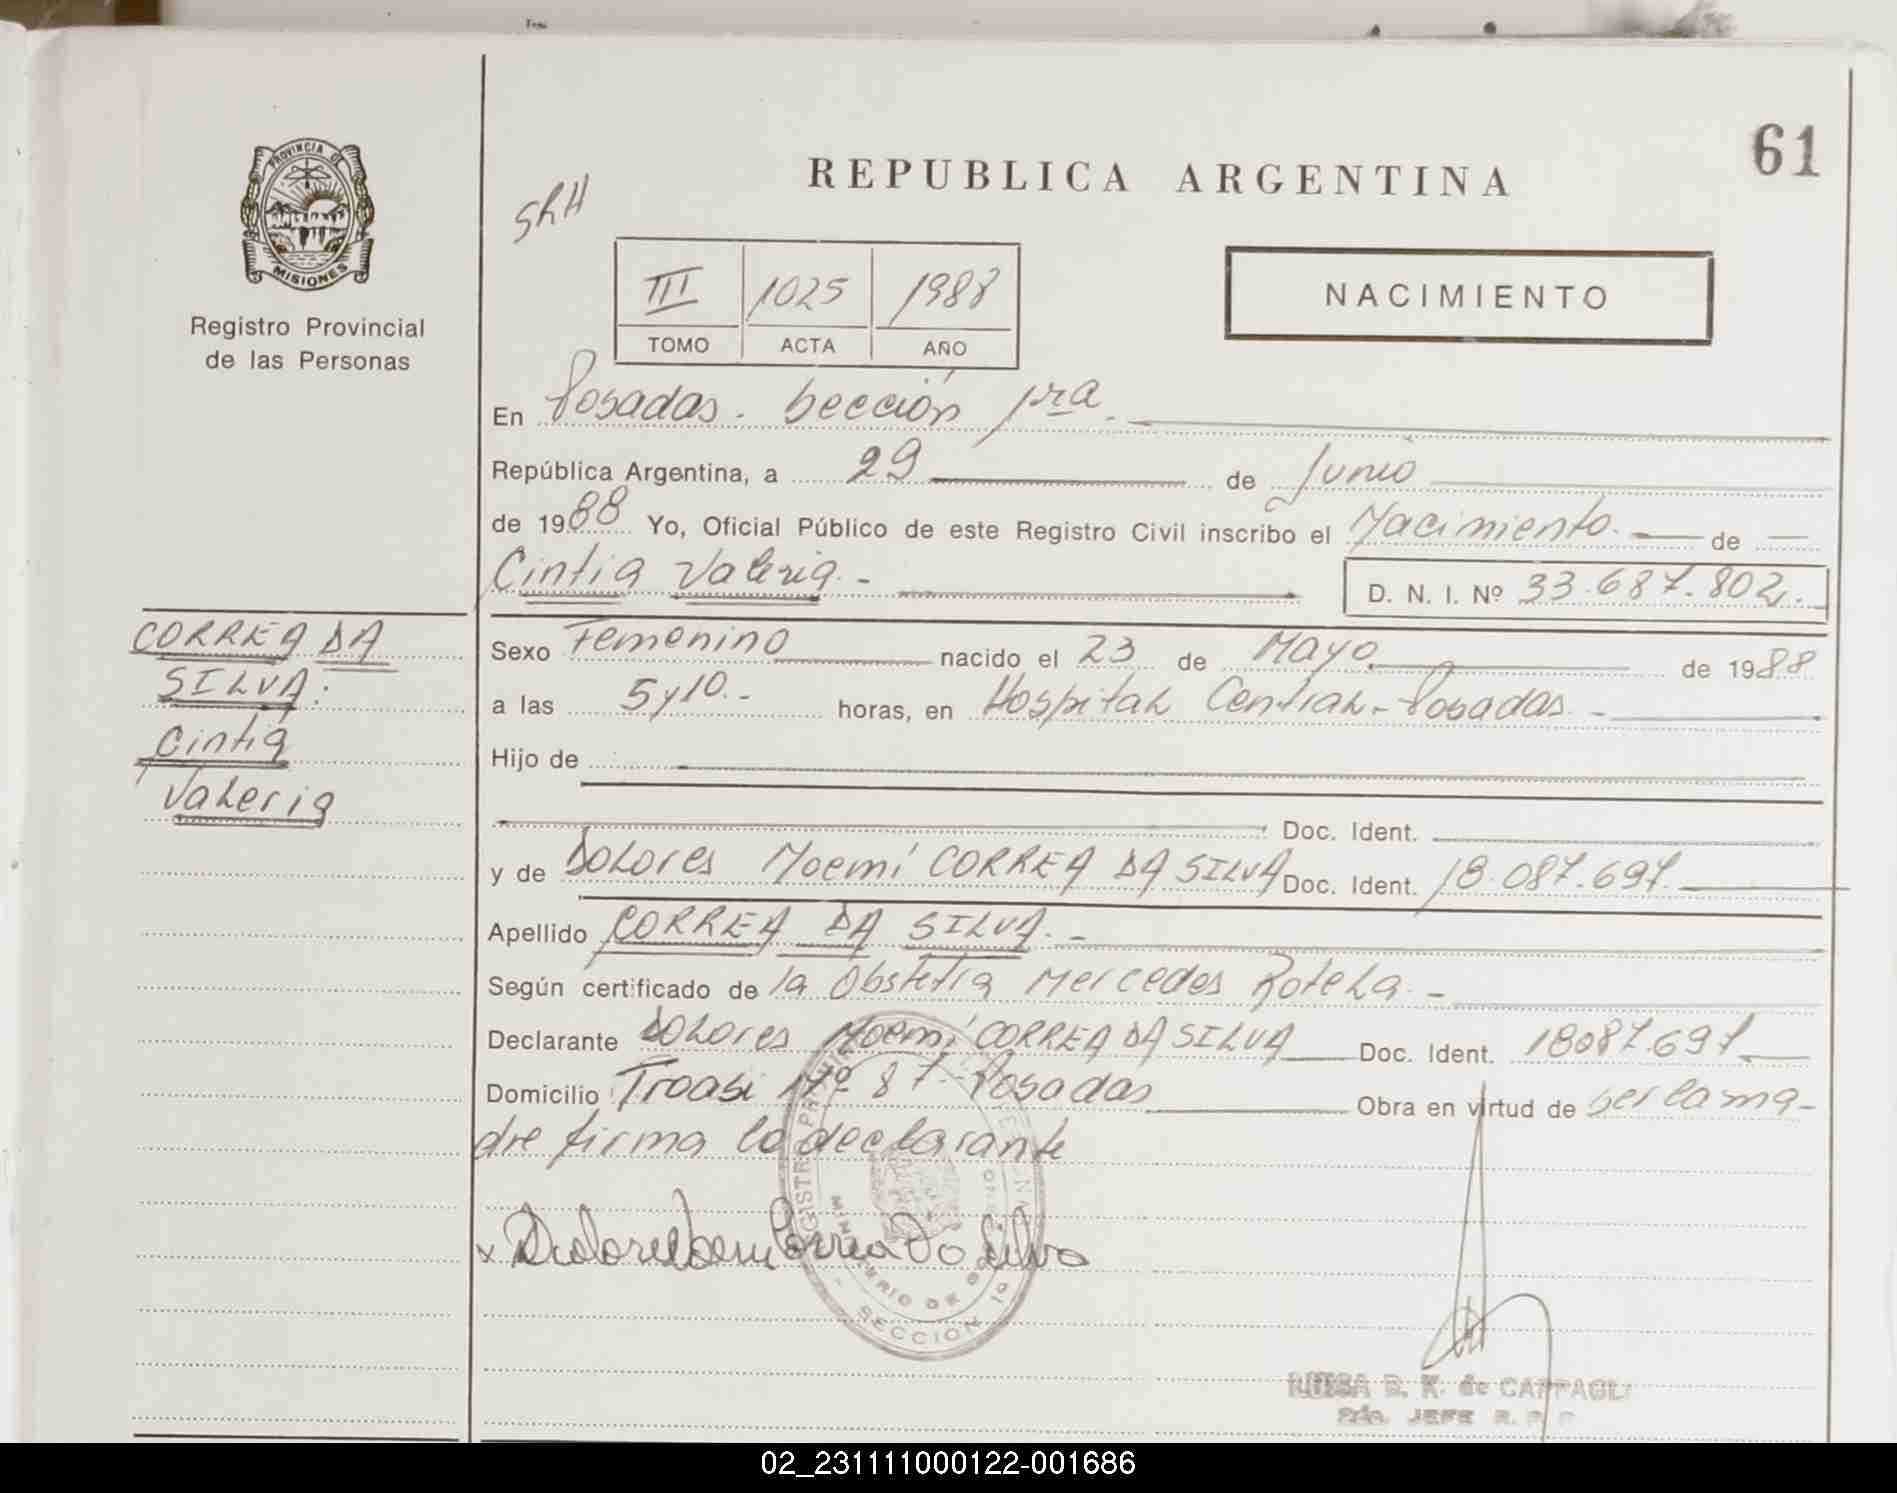 61
PROVINCIA DE
MISIONES
Registro Provincial
de las Personas
REPUBLICA ARGENTINA
III 1025 1988
TOMO ACTA AÑO
NACIMIENTO
En Posadas. Sección 1ra.
República Argentina, a 29 de Junio
de 1988 Yo, Oficial Público de este Registro Civil inscribo el Nacimiento. de
Cintia Valeria.-
D. N. I. Nº 33.687.802.
CORREA DA
SILVA:
Cintia
Valeria
Sexo Femenino nacido el 23 de Mayo de 1988
a las 5 y 10.- horas, en Hospital Central-Posadas.-
Hijo de
Doc. Ident.
y de Dolores Noemí CORREA DA SILVA Doc. Ident. 18.087.697.
Apellido CORREA DA SILVA.-
Según certificado de la Obstetra Mercedes Rotela.-
Declarante Dolores Noemí CORREA DA SILVA Doc. Ident. 18087.697
Domicilio Nº 87.-Posadas Obra en virtud de ser la ma-
dre firma la declarante
x Correa Da Silva
SECCION 1ª
LUISA B. K. de CAPPAGLI
JEFE R. P. P.
02_231111000122-001686